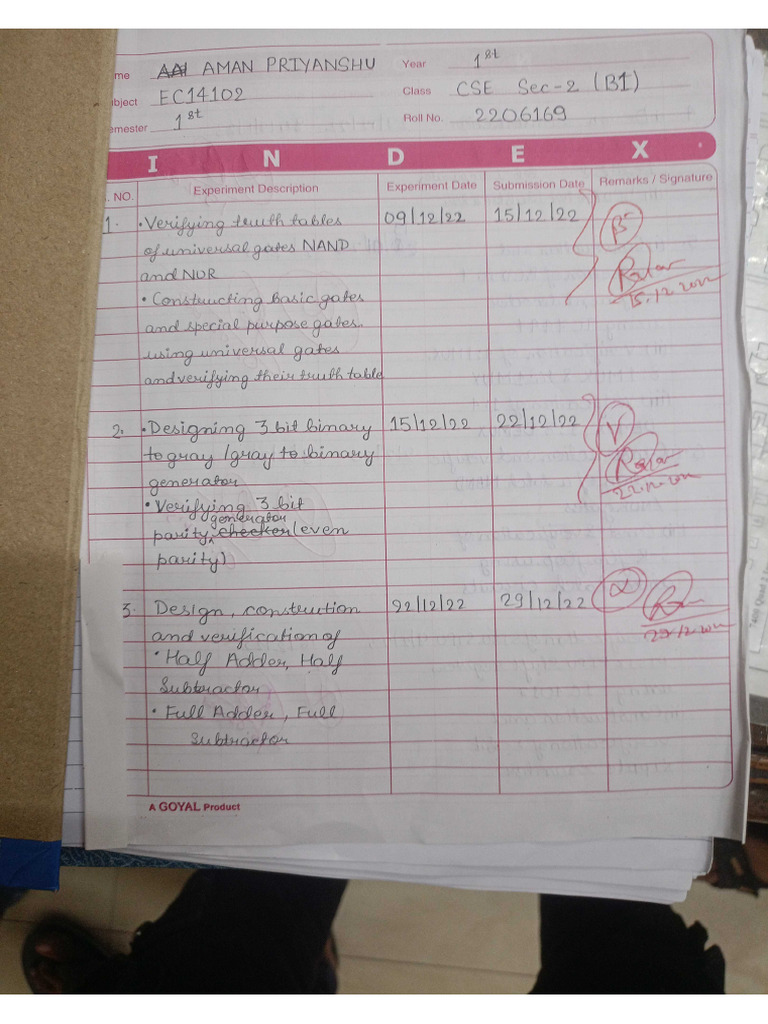 me AAI AMAN PRIYANSHU Year 1st
bject EC14102 Class CSE Sec-2 (B1)
emester 1st Roll No. 2206169
INDEX
. NO. Experiment Description Experiment Date Submission Date Remarks / Signature
1. • Verifying truth tables 09/12/22 15/12/22
of universal gates NAND
and NOR
• Constructing basic gates 15.12.2022
and special purpose gates
using universal gates
and verifying their truth table
2. • Designing 3 bit binary 15/12/22 22/12/22
to gray /gray to binary
generator 22.12.2022
• Verifying 3 bit
generator
parity checker (even
parity)
3. Design, constrution 22/12/22 29/12/22
and verification of 29.12.2022
• Half Adder, Half
Subtractor
• Full Adder, Full
Subtractor
A GOYAL Product